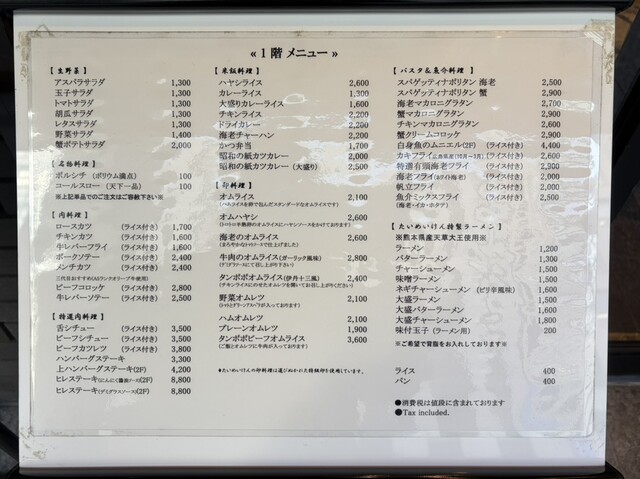 ≪１階 メニュー≫
【 生野菜 】
アスパラサラダ 1,300
玉子サラダ 1,300
トマトサラダ 1,300
胡瓜サラダ 1,300
レタスサラダ 1,300
野菜サラダ 1,400
蟹ポテトサラダ 2,000
【 名物料理 】
ボルシチ （ボリウム満点） 100
コールスロー （天下一品） 100
※上記単品でのご注文はご容赦下さい※
【 肉料理 】
ロースカツ （ライス付き） 1,700
チキンカツ （ライス付き） 1,600
牛レバーフライ （ライス付き） 1,600
ポークソテー （ライス付き） 2,400
メンチカツ （ライス付き） 2,400
ビーフコロッケ （ライス付き） 2,800
牛レバーソテー （ライス付き） 2,500
【 特選肉料理 】
舌シチュー （ライス付き） 3,500
ビーフシチュー （ライス付き） 3,500
ビーフカツレツ （ライス付き） 3,800
ハンバーグステーキ 3,300
上ハンバーグステーキ(2F) 4,200
ヒレステーキ(にんにく醤油ソース)(2F) 8,800
ヒレステーキ(デミグラスソース)(2F) 8,800
【 米飯料理 】
ハヤシライス 2,600
カレーライス 1,300
大盛りカレーライス 1,600
チキンライス 2,200
ドライカレー 2,200
海老チャーハン 2,200
かつ弁当 1,700
昭和の紙カツカレー 2,000
昭和の紙カツカレー （大盛り） 2,500
【 卵料理 】
オムライス 2,100
オムハヤシ 2,600
海老のオムライス 2,600
牛肉のオムライス（ガーリック風味） 2,800
タンポポオムライス（伊丹十三風） 2,400
野菜オムレツ 2,100
ハムオムレツ 2,100
プレーンオムレツ 1,900
タンポポビーフオムライス 3,600
【 パスタ＆魚介料理 】
スパゲッティナポリタン 海老 2,500
スパゲッティナポリタン 蟹 2,900
海老マカロニグラタン 2,700
蟹マカロニグラタン 2,900
チキンマカロニグラタン 2,600
蟹クリームコロッケ 2,900
白身魚のムニエル(2F) （ライス付き） 4,400
（ライス付き） 2,600
特選有頭海老フライ （ライス付き） 2,900
海老フライ （ライス付き） 2,000
帆立フライ （ライス付き） 2,000
魚介ミックスフライ （ライス付き） 2,500
（海老・イカ・ホタテ）
【 たいめいけん特製ラーメン 】
※熊本県産天草大王使用※
ラーメン 1,200
バターラーメン 1,300
チャーシューメン 1,500
味噌ラーメン 1,500
ネギチャーシューメン （ピリ辛風味） 1,600
大盛ラーメン 1,500
大盛バターラーメン 1,600
大盛チャーシューメン 1,800
味付玉子（ラーメン用） 200
※ご希望で背脂をお入れしております※
ライス 400
パン 400
●消費税は値段に含まれております
●Tax included.